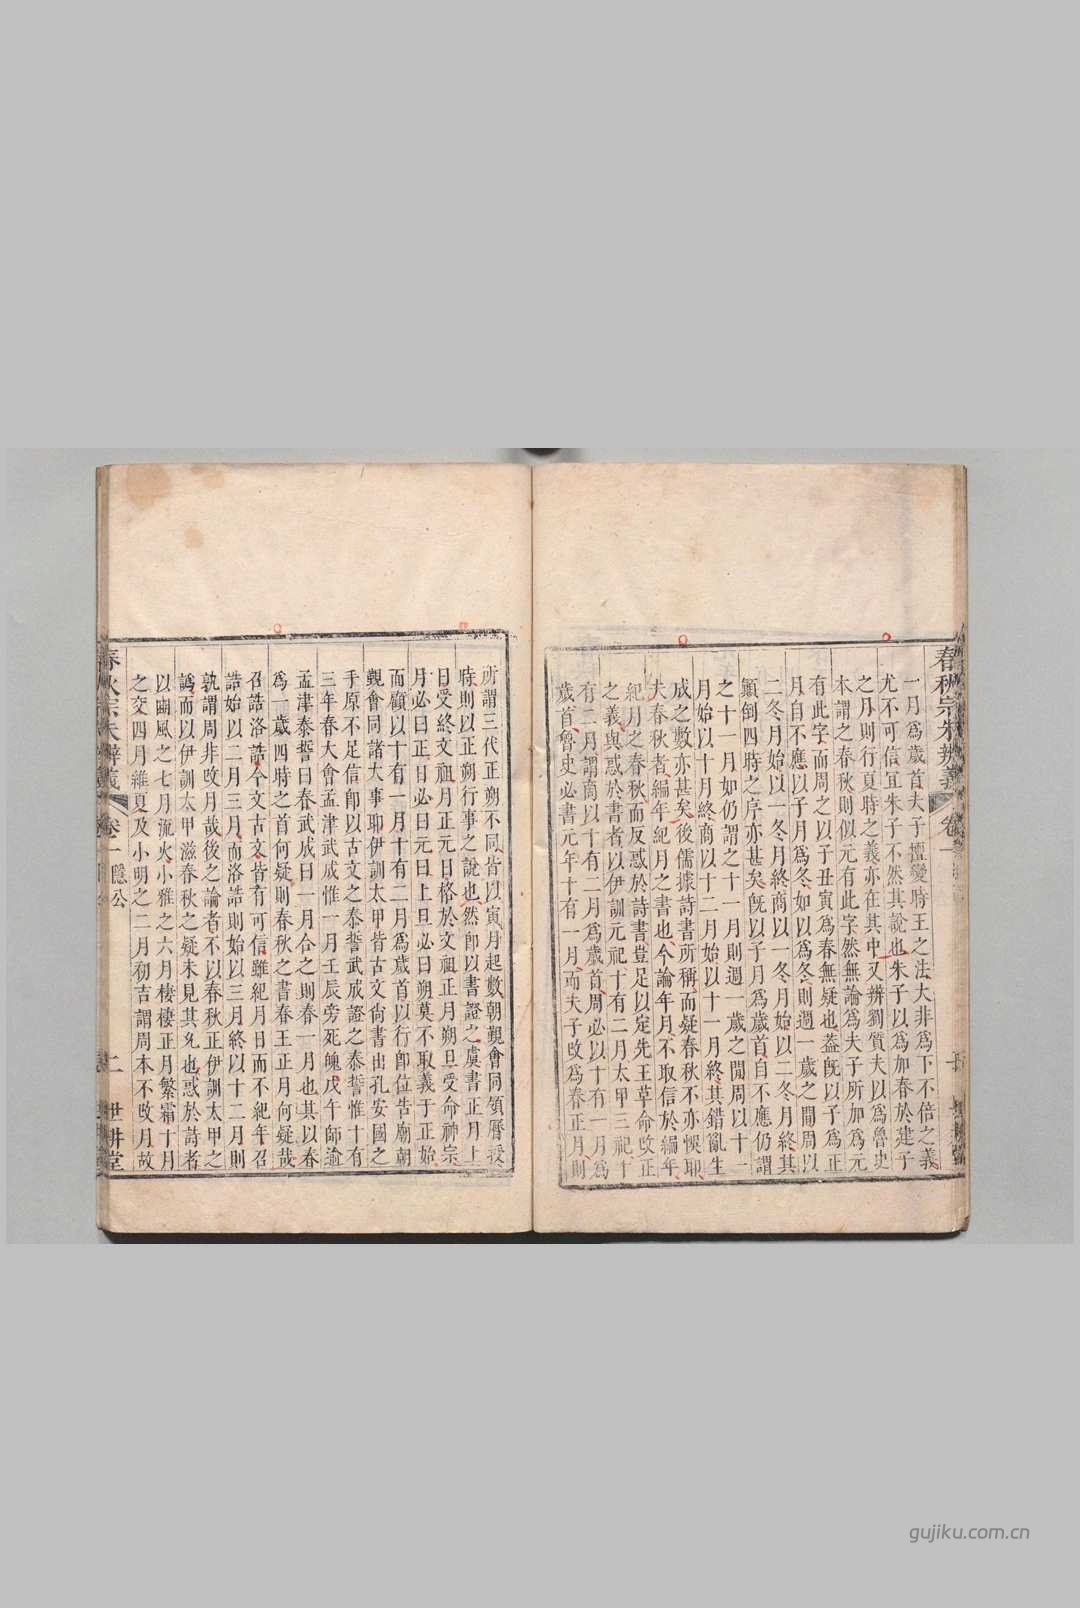 春秋宗朱辨義
卷一
一月爲歲首夫子擅變時王之法大非爲下不倍之義
尤不可信宜朱子不然其說也朱子以爲加春於建子
之月則行夏時之義亦在其中又辨劉質夫以爲魯史
本謂之春秋則似元有此字然無論爲夫子所加爲元
有此字而周之以子丑寅爲春無疑也蓋旣以子爲正
月自不應以子月爲冬如以爲冬則週一歲之間周以
二冬月始以一冬月終商以一冬月始以二冬月終其
顚倒四時之序亦甚矣旣以子月爲歲首自不應仍謂
之十一月如仍謂之十一月則週一歲之間周以十一
月始以十月終商以十二月始以十一月終其錯亂生
成之數亦甚矣後儒據詩書所稱而疑春秋不亦悞耶
夫春秋者編年紀月之書也今論年月不取信於編年
紀月之春秋而反惑於詩書豈足以定先王革命改正
之義與惑於書者以伊訓元祀十有二月太甲三祀十
有二月謂商以十有二月爲歲首周必以十有一月爲
歲首魯史必書元年十有一月而夫子改爲春正月則
所謂三代正朔不同皆以寅月起數朝覲會同頒曆授
時則以正朔行事之說也然卽以書證之虞書正月上
日受終文祖月正元日格於文祖正月朔旦受命神宗
月必曰正日必曰元曰上旦必曰朔莫不取義于正始
而顧以十有一月十有二月爲歲首以行卽位告廟朝
覲會同諸大事耶伊訓太甲皆古文尙書出孔安國之
手原不足信卽以古文之泰誓武成證之泰誓惟十有
三年春大會孟津武成惟一月壬辰旁死魄戊午師逾
孟津泰誓曰春武成曰一月合之則春一月也其以春
爲一歲四時之首何疑則春秋之書春王正月何疑哉
召誥洛誥今文古文皆有可信雖紀月日而不紀年召
誥始以二月三月而洛誥則始以三月終以十二月則
孰謂周非改月哉後之論者不以春秋正伊訓太甲之
譌而以伊訓太甲滋春秋之疑未見其允也惑於詩者
以豳風之七月流火小雅之六月棲棲正月繁霜十月
之交四月維夏及小明之二月初吉謂周本不改月故
春秋宗朱辨義
卷一 隱公
二
世耕堂
gujiku.com.cn